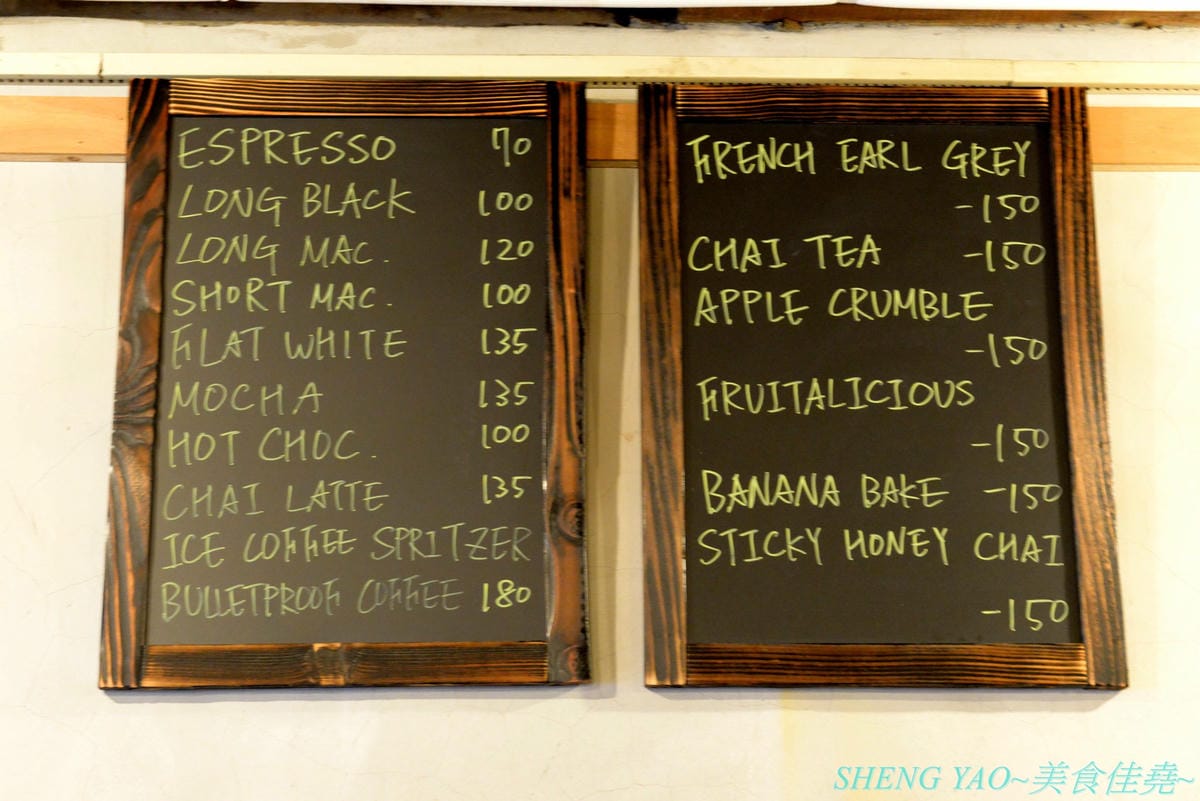 ESPRESSO 70
LONG BLACK 100
LONG MAC. 120
SHORT MAC. 100
FLAT WHITE 135
MOCHA 135
HOT CHOC. 100
CHAI LATTE 135
ICE COFFEE SPRITZER
BULLETPROOF COFFEE 180
FRENCH EARL GREY
-150
CHAI TEA -150
APPLE CRUMBLE
-150
FRUITALICIOUS
-150
BANANA BAKE -150
STICKY HONEY CHAI
-150
SHENG YAO~美食佳堯~